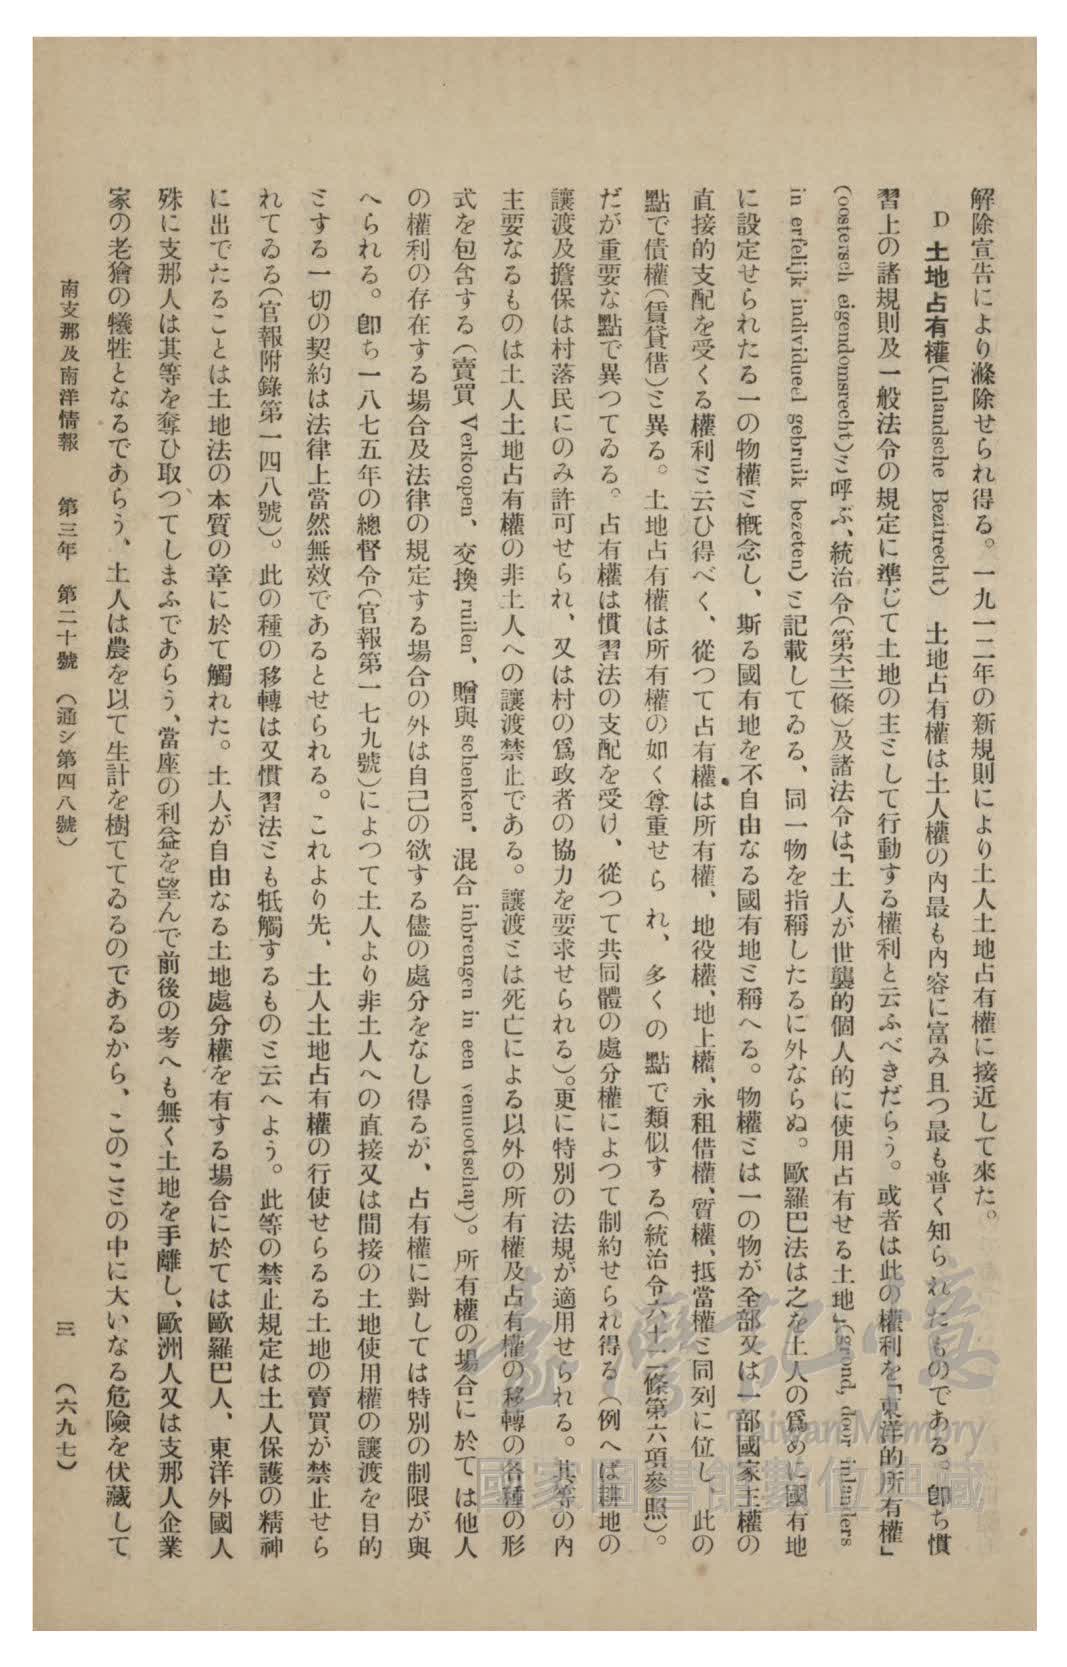 解除宣告により滌除せられ得る。一九一二年の新規則により土人土地占有權に接近して來た。
D 土地占有權(Inlandsche Bezitrecht) 土地占有權は土人權の內最も內容に富み且つ最も普く知られたものである。卽ち慣
習上の諸規則及一般法令の規定に準じて土地の主ミして行動する權利と云ふべきだらう。或者は此の權利を「東洋的所有權」
(oostersch eigendomsrecht)ミ呼ぶ、統治令(第六十二條)及諸法令は「土人が世襲的個人的に使用占有せる土地」(grond, door inlanders
in erfelijk individueel gebruik bezeten)ミ記載してゐる、同一物を指稱したるに外ならぬ。歐羅巴法は之を土人の爲めに國有地
に設定せられたる一の物權ミ槪念し、斯る國有地を不自由なる國有地ミ稱へる。物權ミは一の物が全部又は一部國家主權の
直接的支配を受くる權利ミ云ひ得べく、從つて占有權は所有權、地役權、地上權、永租借權、質權、抵當權ミ同列に位し、此の
點で債權(賃貸借)ミ異る。土地占有權は所有權の如く尊重せられ、多くの點で類似する(統治令六十二條第六項參照)。
だが重要な點で異つてゐる。占有權は慣習法の支配を受け、從つて共同體の處分權によつて制約せられ得る(例へば耕地の
讓渡及擔保は村落民にのみ許可せられ、又は村の爲政者の協力を要求せられる)。更に特別の法規が適用せられる。其等の內
主要なるものは土人土地占有權の非土人への讓渡禁止である。讓渡ミは死亡による以外の所有權及占有權の移轉の各種の形
式を包含する(賣買 Verkoopen、交換 ruilen、贈與 schenken、混合 inbrengen in een vennootschap)。所有權の場合に於ては他人
の權利の存在する場合及法律の規定する場合の外は自己の欲する儘の處分をなし得るが、占有權に對しては特別の制限が與
へられる。卽ち一八七五年の總督令(官報第一七九號)によつて土人より非土人への直接又は間接の土地使用權の讓渡を目的
ミする一切の契約は法律上當然無效であるとせられる。これより先、土人土地占有權の行使せらるる土地の賣買が禁止せら
れてゐる(官報附錄第一四八號)。此の種の移轉は又慣習法ミも牴觸するものミ云へよう。此等の禁止規定は土人保護の精神
に出でたることは土地法の本質の章に於て觸れた。土人が自由なる土地處分權を有する場合に於ては歐羅巴人、東洋外國人
殊に支那人は其等を奪ひ取つてしまふであらう、當座の利益を望んで前後の考へも無く土地を手離し、歐洲人又は支那人企業
家の老獪の犧牲となるであらう、土人は農を以て生計を樹ててゐるのであるから、このこミの中に大いなる危險を伏藏して
南支那及南洋情報 第三年 第二十號 (通シ第四八號) 三 (六九七)
臺灣記憶
Taiwan Memory
國家圖書館數位典藏